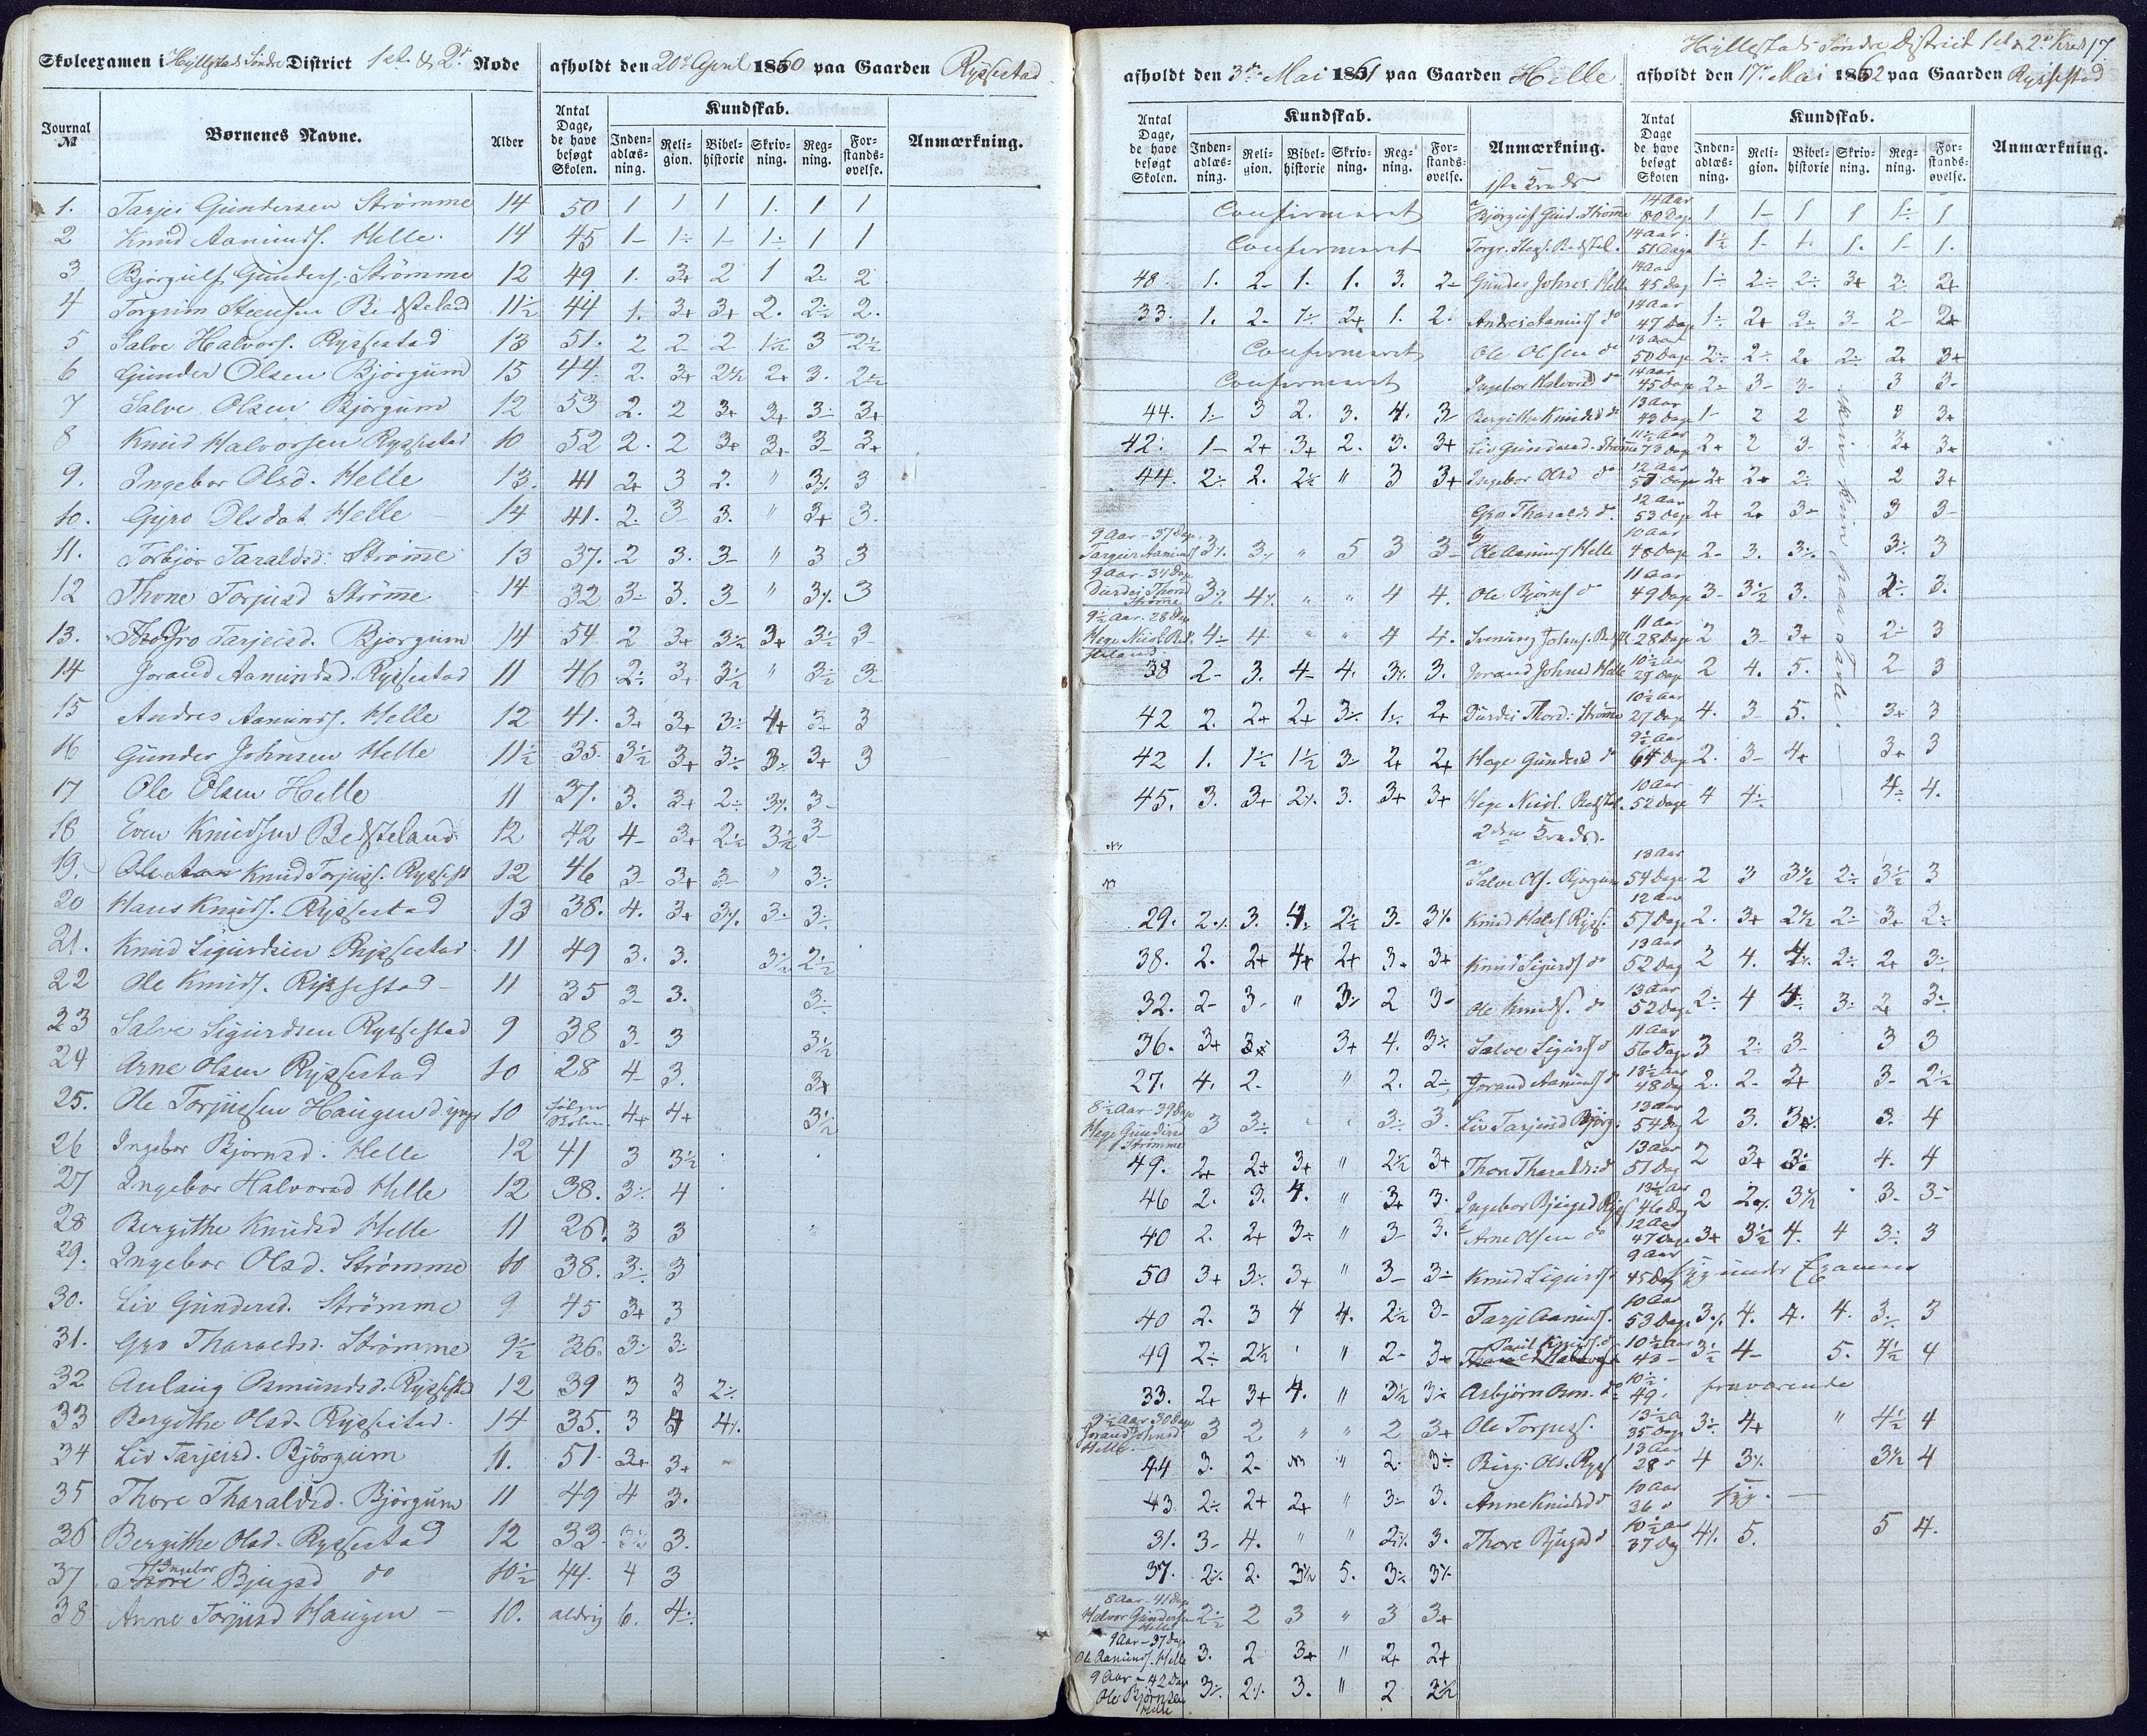 Skoleexamen i Hyllestads Søndre District 1ste & 2de Rode
afholdt den 20de April 1860 paa Gaarden Rysstad
Journal № Børnenes Navne. Alder Antal Dage, de have besøgt Skolen. Kundskab. Indenadlæsning. Religion. Bibelhistorie Skrivning. Regning. Forstandsøvelse. Anmærkning.
1. Tarjei Gundersen Strømme 14 50 1 1 1 1. 1 1
2 Knud Aamunds. Helle. 14 45 1- 1÷ 1- 1÷ 1 1
3 Bjorgulf Gunders. Strömme 12 49 1. 3+ 2 1 2. 2
4 Torgrim Steensen Bedsteland 11½ 44 1. 3+ 3+ 2. 2½ 2.
5 Salve Halvors. Ryssestad 13 51. 2 2 2 1½ 3 2½
6 Gunder Olsen Bjorgum 15 44 2. 3+ 2½ 2+ 3. 2½
7 Salve Olsen Bjorgum 12 53 2. 2 3+ 3+ 3÷ 3+
8 Knud Halvorsen Ryssestad 10 52 2. 2 3+ 3+ 3 3+
9. Ingebor Olsd. Helle 13. 41 2+ 3 2. " 3÷ 3
10. Gyro Olsdat Helle 14 41. 2. 3 3. " 3+ 3.
11. Torbjor Taraldsd. Strömme 13 37. 2 3. 3- " 3 3
12 Thone Torjusd Strömme 14 32 3- 3. 3- " 3÷ 3
13. Gro Tarjeisd. Bjorgum 14 54 2 3+ 3½ 3+ 3½ 3-
14 Jorand Aamundsd. Ryssestad 11 46 2÷ 3+ 3½ " 3½ 3-
15 Andres Aamunds. Helle 12 41. 3+ 3+ 3÷ 4+ 3- 3
16 Gunder Johnsen Helle 11½ 35. 3½ 3+ 3÷ 3÷ 3+ 3
17 Ole Olsen Helle 11 37. 3. 3+ 2÷ 3÷ 3-
18 Even Knudsen Bedsteland 12 42 4- 3+ 2½ 3½ 3-
19. Knud Torjuss. Rysses 12 46 3- 3+ 3- " 3÷
20 Hans Knuds. Ryssestad 13 38. 4. 3+ 3÷ 3. 3÷
21. Knud Sigurdsen Ryssestad 11 49 3. 3. 3½ 2½
22 Ole Knuds. Ryssestad 11 35 3- 3. 3÷
23 Salve Sigurdsen Ryssestad 9 38 3- 3 3½
24 Arne Olsen Ryssestad 10 28 4- 3. 3+
25. Ole Torjussen Haugen d yngr 10 4+ 4+ 3½
26 Ingebor Bjornsd. Helle 12 41 3 3½
27 Ingebor Halvorsd Helle 12 38. 3÷ 4
28 Bergithe Knudsd Helle 11 26. 3 3
29. Ingebor Olsd. Strömme 10 38. 3÷ 3
30. Liv Gundersd. Strömme 9 45 3+ 3
31. Gro Tharaldsd. Strömme 9½ 36. 3÷ 3÷
32 Aslaug Osmundsd. Ryssestad 12 39 3 3 2÷
33 Bergithe Olsd. Ryssestad. 14 35. 3 4 4÷
34 Liv Tarjeisd. Bjørgum 11. 51 3+ 3+
35 Thore Tharaldsd. Bjørgum 11 49 4 3.
36 Bergithe Olsd. Ryssestad 12 33 3½ 3.
37 Ingebor Bjugsd do 10½ 44. 4 3
38 Anne Torjusd Haugen 10. aldrig 6. 4÷
Hyllestads Søndre District 1ste & 2den Kreds 17
afholdt den 3die Mai 1861 paa Gaarden Helle
afholdt den 17de Mai 1862 paa Gaarden Rysstad
Antal Dage, de have besøgt Skolen. Kundskab. Indenadlæsning. Religion. Bibelhistorie Skrivning. Regning. Forstandsøvelse. Anmærkning.
Antal Dage de have besøgt Skolen Kundskab. Indenadlæsning. Religion. Bibelhistorie Skrivning. Regning. Forstandsøvelse. Anmærkning.
1ste Kreds
Confirmeret Bjørgulf Gund. Strömme 14 Aar 80 Dage 1 1- 1 1 1÷ 1
Confirmeret Torgr. Stens. Bedstel. 14 Aar 51 Dage 1½ 1- 1. 1. 1- 1.
48 1. 2- 1. 1. 3. 2- Gunder Johns. Helle 14 Aar 45 Dag 1÷ 2÷ 2÷ 3+ 2÷ 2+
33. 1. 2- 1÷ 2+ 1. 2. Andres Aamunds do 14 Aar 47 Dage 1÷ 2+ 2÷ 3- 2- 2+
Confirmeret Ole Olsen do 13 Aar 50 Dage 2÷ 2÷ 2+ 2÷ 2+ 3+
Confirmeret Ingebor Halvorsd do 14 Aar 45 Dage 2- 3- 3- 3 3-
44. 1- 3 2. 3. 4. 3- Bergithe Knudsd do 13 Aar 43 Dage 1- 2 2 3 3+
42. 1- 2+ 3+ 2. 3. 3+ Liv Gundersd. Strömme 11½ Aar 73 Dage 2+ 2 3- 3+ 3+
44. 2÷ 2. 2½ " 3 3+ Ingebor Olsd do 12 Aar 57 Dage 2+ 2+ 2÷ 2 3+
Gro Tharaldsd do 12 Aar 53 Dage 2+ 2+ 3- 3 3-
skriver kun paa Tavle
9 Aar - 37 Dage Targeir Aamunds 3÷ 3÷ " 5 3 3- Ole Aamunds Helle 10 Aar 48 Dage 2- 3. 3÷ 3÷ 3
9 Aar - 34 Dage Durdei Thord Strömme 3÷ 4÷ " " 4 4. Ole Bjørns do 11 Aar 49 Dage 3- 3½ 3. 2÷ 3.
9½ Aar - 28 Dage Hege Niels. Bedsteland 4÷ 4 " " 4 4. Svenung Johns. 11 Aar 28 Dage 2 3- 3+ 2÷ 3
38 2- 3. 4- 4. 3÷ 3. Jorand Johnsd Helle 10½ Aar 29 Dage 2 4. 5. 2- 3
42 2. 2+ 2+ 3÷ 1÷ 2+ Durdei Thord. Strömme 10½ Aar 27 Dage 4. 3- 5. 3+ 3
42 1. 1½ 1½ 3- 2+ 2+ Hege Gundersd do 9½ Aar 64 Dage 2. 3- 4+ 3+ 3
45. 3. 3+ 2÷ 3. 3+ 3+ Hege Niels. Bedstel. 10 Aar 52 Dage 4 4÷ 4÷ 4.
2den Kreds.
Salve Ols. Bjorgum 13 Aar 54 Dage 2 3 3½ 2÷ 3½ 3
29. 2÷ 3. 4÷ 2½ 3- 3÷ Knud Halvs Ryss. 12 Aar 57 Dage 2. 3+ 2½ 2÷ 3+ 2÷
38. 2. 2+ 4+ 2+ 3+ 3+ Knud Sigurds do 13 Aar 52 Dag 2 4. 4÷ 2÷ 2+ 3÷
32. 2- 3- " 3÷ 2 3- Ole Knuds. do 13 Aar 52 Dage 2÷ 4 4÷ 3÷ 2+ 3÷
36. 3+ 3+ 3+ 4. 3÷ Salve Sigurds do 11 Aar 56 Dage 3 2÷ 3- 3 3
27. 4. 2. " 2. 2- Jorand Aamunds do 13½ Aar 48 Dag 2. 2- 2+ 3- 2½
8½ Aar 39 Dage Hege Gundersd Strömme 3 3÷ 3÷ 3. Liv Tarjeisd Bjørg. 13 Aar 54 Dag 2 3. 3÷ 3. 4
49. 2+ 2+ 3+ " 2½ 3+ Thore Tharaldsd do 13 Aar 51 Dag 2 3+ 3÷ 4. 4
46 2. 3. 4. " 3+ 3. Ingebor Bjugsd Ryss 13½ Aar 46 Dag 2 2÷ 3½ 3- 3-
40 2. 2+ 3÷ " 3- 3. Arne Olsen do 12 Aar 47 Dage 3+ 3½ 4. 4 3÷ 3
50 3+ 3÷ 3+ " 3- 3÷ Knud Sigurds do 9 Aar 45 Dag syg under Examen
40 2. 3 4 4. 2½ 3- Tarje Aamunds. 10 Aar 53 Dage 3÷ 4. 4. 4. 3÷ 3
49 2÷ 2½ " 2- 3+ Knuds. do 10½ Aar 43 - 3½ 4- 5. 4½ 4
33. 2+ 3+ 4. " 3½ 3÷ Asbjørn Osm. do 10½ 49 fraværende
9½ Aar 30 Dage Jorand Johnsd. Helle 3 2 " " 2 3+ Ole Torjuss. 13½ A 35 Dage 3÷ 4+ " 4½ 4
44 3. 2- " 2. 3÷ Berg. Ols. Ryss 13 Aar 28 4 3÷ 3½ 4
43. 2÷ 2+ 2+ " 3- 3. Anne Knudsd do 10 Aar 36 syg. -
31. 3- 4. " " 2÷ 3. Thore Bjugsd do 10½ Aar 37 Dag 4÷ 5. 5 4.
37. 2÷ 2. 3½ 5. 3÷ 3÷
8 Aar - 41 Dage Halvor Gundersen Helle 2½ 2 3 " 3 3+
9 Aar - 37 Dag Ole Aamunds. Helle 3. 2 3+ " 2+ 2+
9 Aar - 42 Dag Ole Bjørnsen Helle 3÷ 2÷ 3. " 2 2½